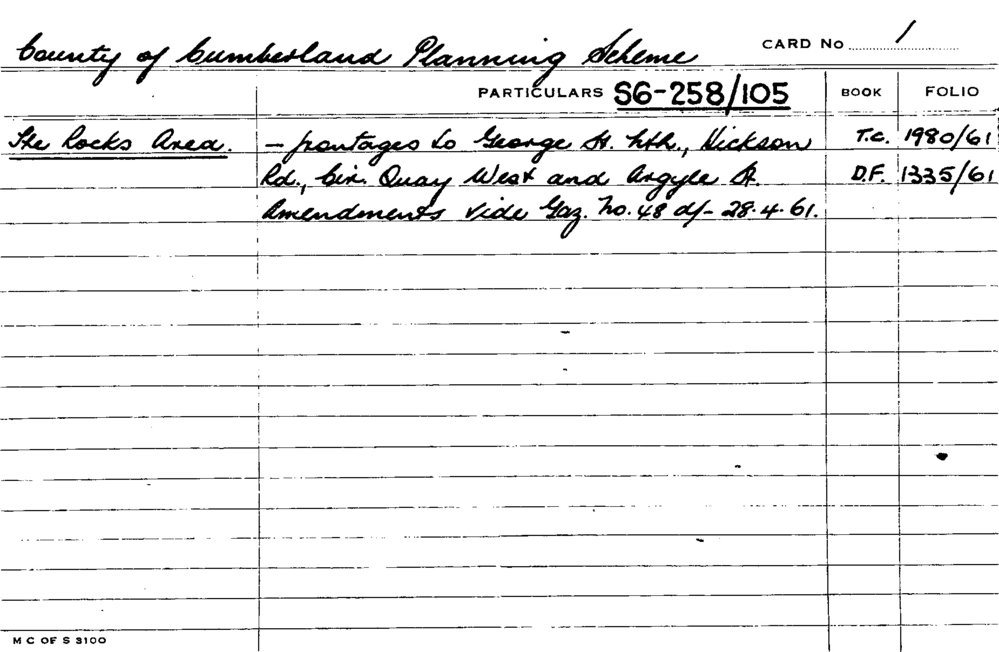 County of Cumberland Planning Scheme CARD No 1
PARTICULARS S6-258/105 BOOK FOLIO
The Rocks Area. - frontages to George St. Nth., Hickson T.C. 1980/61
Rd., Cir. Quay West and Argyle St. D.F. 1335/61
Amendments vide Gaz. No. 48 d/- 28.4.61.
M C OF S 3100